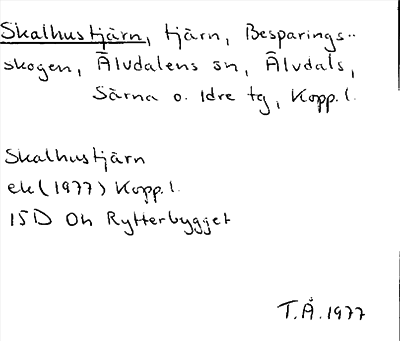 Skalhustjärn, tjärn, Besparings-
skogen, Älvdalens sn, Älvdals,
Särna o. Idre tg, Kopp.l.
Skalhustjärn
ek(1977) Kopp.l.
15D 0h Rytterbygget
T.Å.1977